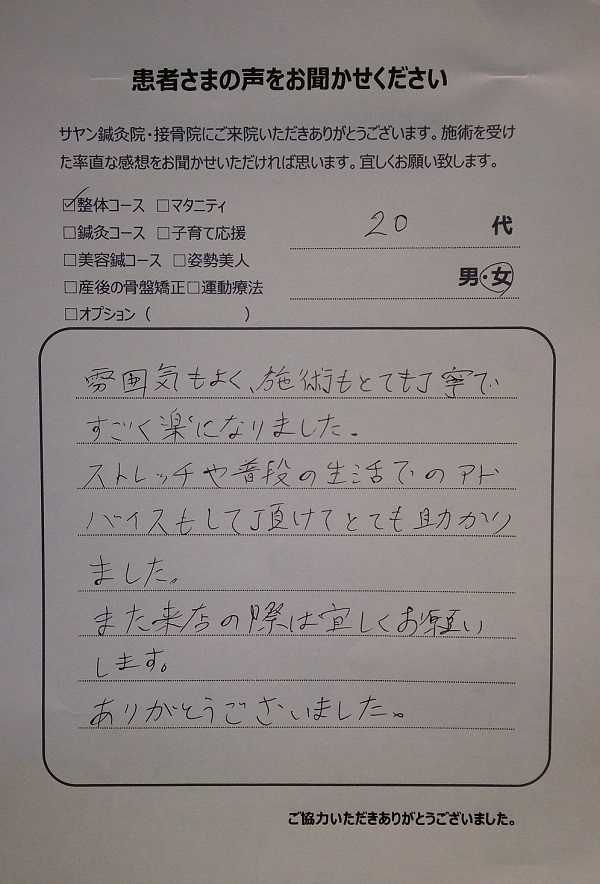 患者さまの声をお聞かせください
サヤン鍼灸院・接骨院にご来院いただきありがとうございます。施術を受け
た率直な感想をお聞かせいただければ思います。宜しくお願い致します。
☑整体コース □マタニティ
□鍼灸コース □子育て応援
□美容鍼コース □姿勢美人
□産後の骨盤矯正□運動療法
□オプション（ ）
20 代
男・女
雰囲気もよく、施術もとても丁寧で
すごく楽になりました。
ストレッチや普段の生活でのアド
バイスもして頂けてとても助かり
ました。
また来店の際は宜しくお願い
します。
ありがとうございました。
ご協力いただきありがとうございました。